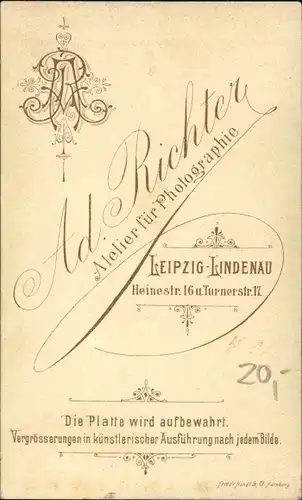 Ad. Richter
Atelier für Photographie
LEIPZIG-LINDENAU
Heinestr. 16 u. Turnerstr. 17.
20,-
Die Platte wird aufbewahrt.
Vergrösserungen in künstlerischer Ausführung nach jedem Bilde.